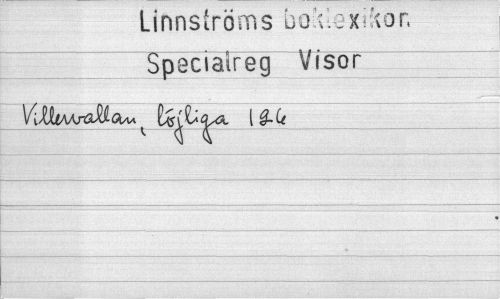 Linnströms boklexikon.
Specialreg Visor
Villervallan, löjliga 126